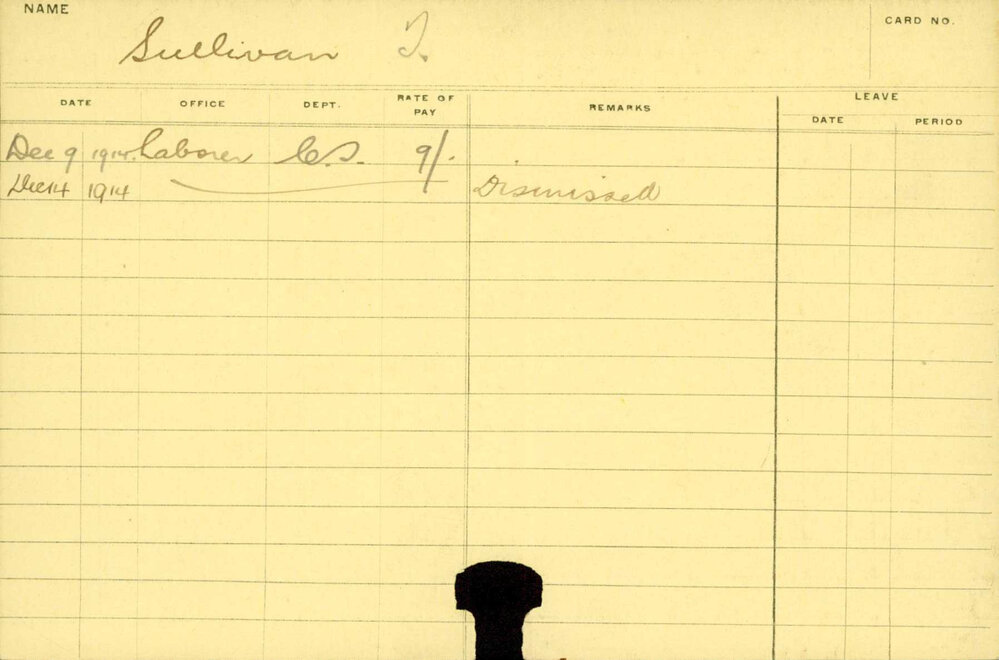 NAME
CARD NO.
Sullivan T.
DATE OFFICE DEPT. RATE OF PAY REMARKS LEAVE
DATE PERIOD
Dec 9 1914 Laborer 9/-
Dec 14 1914 Dismissed